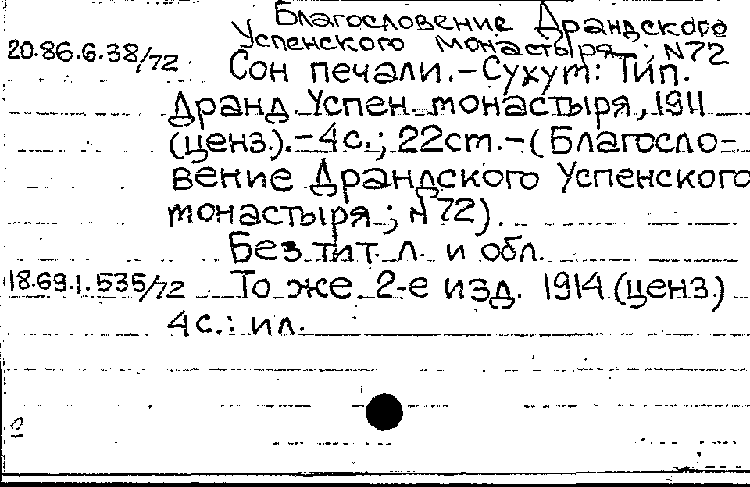 Благословение Драндского
Успенского монастыря ; N72
20.86.6.38/72 Сон печали. – Сухум: Тип.
Дранд. Успен. монастыря, 1911
(ценз.). – 4с.; 22см. – (Благосло-
вение Драндского Успенского
монастыря ; N72).
Без тит. л. и обл.
18.69.1.535/72 То же. 2-е изд. 1914 (ценз.)
4с.: ил.